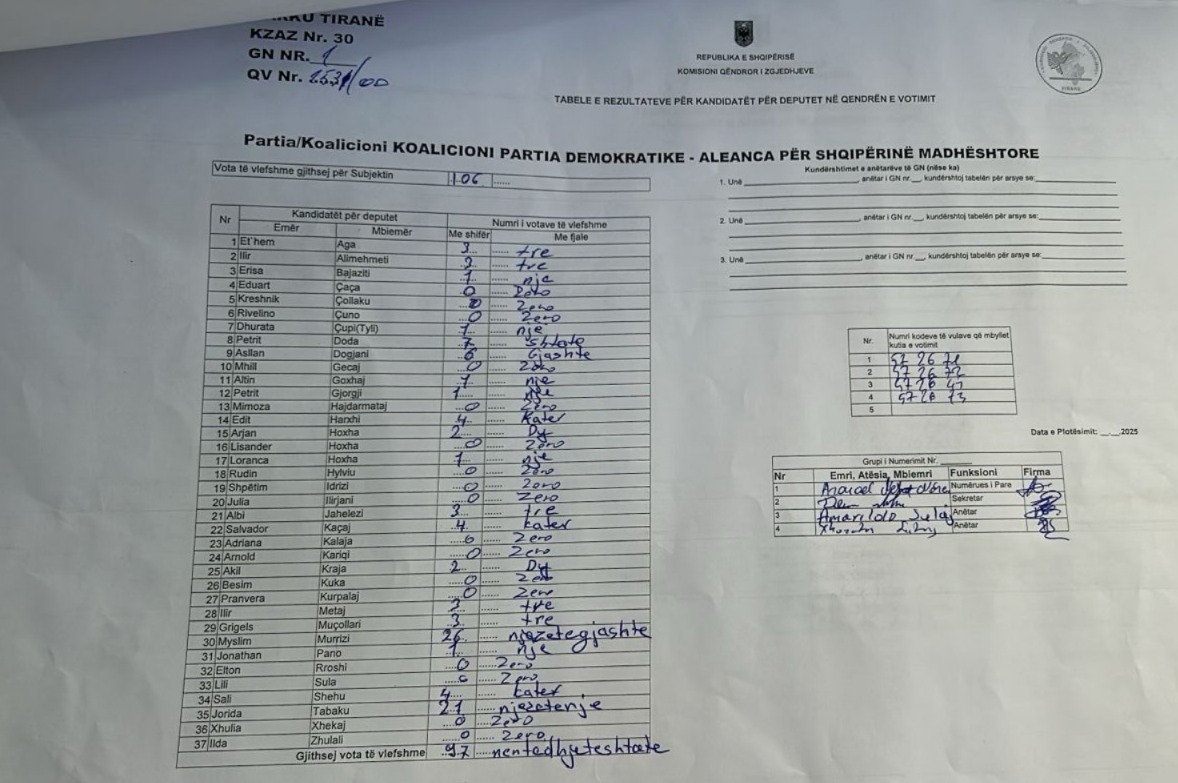 TIRANË
KZAZ Nr. 30
GN NR. 1
QV Nr.
REPUBLIKA E SHQIPËRISË
KOMISIONI QËNDROR I ZGJEDHJEVE
TABELE E REZULTATEVE PËR KANDIDATËT PËR DEPUTET NË QENDRËN E VOTIMIT
Partia/Koalicioni KOALICIONI PARTIA DEMOKRATIKE - ALEANCA PËR SHQIPËRINË MADHËSHTORE
Vota të vlefshme gjithsej për Subjektin 106
Nr Kandidatët për deputet Numri i votave të vlefshme
Emër Mbiemër Me shifër Me fjale
1 Et'hem Aga 3 tre
2 Ilir Alimehmeti 3 tre
3 Erisa Bajaziti 1 nje
4 Eduart Çaça 0 Zero
5 Kreshnik Çollaku 0 Zero
6 Rivelino Çuno 0 Zero
7 Dhurata Çupi(Tyli) 1 një
8 Petrit Doda 7 shtate
9 Asllan Dogjani 6 Gjashte
10 Mhill Gecaj 0 Zero
11 Altin Goxhaj 1 nje
12 Petrit Gjorgji 1 nje
13 Mimoza Hajdarmataj 0 Zero
14 Edit Harxhi 4 Kater
15 Arjan Hoxha 2 Dy
16 Lisander Hoxha 0 Zero
17 Loranca Hoxha 1 nje
18 Rudin Hylviu 0 Zero
19 Shpëtim Idrizi 0 Zero
20 Julia Ilirjani 0 Zero
21 Albi Jahelezi 3 tre
22 Salvador Kaçaj 4 kater
23 Adriana Kalaja 0 Zero
24 Arnold Kariqi 0 Zero
25 Akil Kraja 2 Dy
26 Besim Kuka 0 Zero
27 Pranvera Kurpalaj 0 Zero
28 Ilir Metaj 3 tre
29 Grigels Muçollari 3 tre
30 Myslim Murrizi 26 njezetegjashte
31 Jonathan Pano 1 nje
32 Elton Rroshi 0 Zero
33 Lili Sula 0 Zero
34 Sali Shehu 4 kater
35 Jorida Tabaku 21 njezetenje
36 Xhulia Xhekaj 0 Zero
37 Ilda Zhulali 0 Zero
Gjithsej vota të vlefshme 97 nentedhjeteshtate
Kundërshtimet e anëtarëve të GN (nëse ka)
1. Unë , anëtar i GN nr. , kundërshtoj tabelën për arsye se:
2. Unë , anëtar i GN nr. , kundërshtoj tabelën për arsye se:
3. Unë , anëtar i GN nr. , kundërshtoj tabelën për arsye se:
Nr. Numri kodeve të vulave që mbyllet kutia e votimit
1
2
3
4
5
Data e Plotësimit: __.__.2025
Grupi i Numerimit Nr.
Nr Emri, Atësia, Mbiemri Funksioni Firma
1 Numërues i Pare
2 Sekretar
3 Anëtar
4 Anëtar